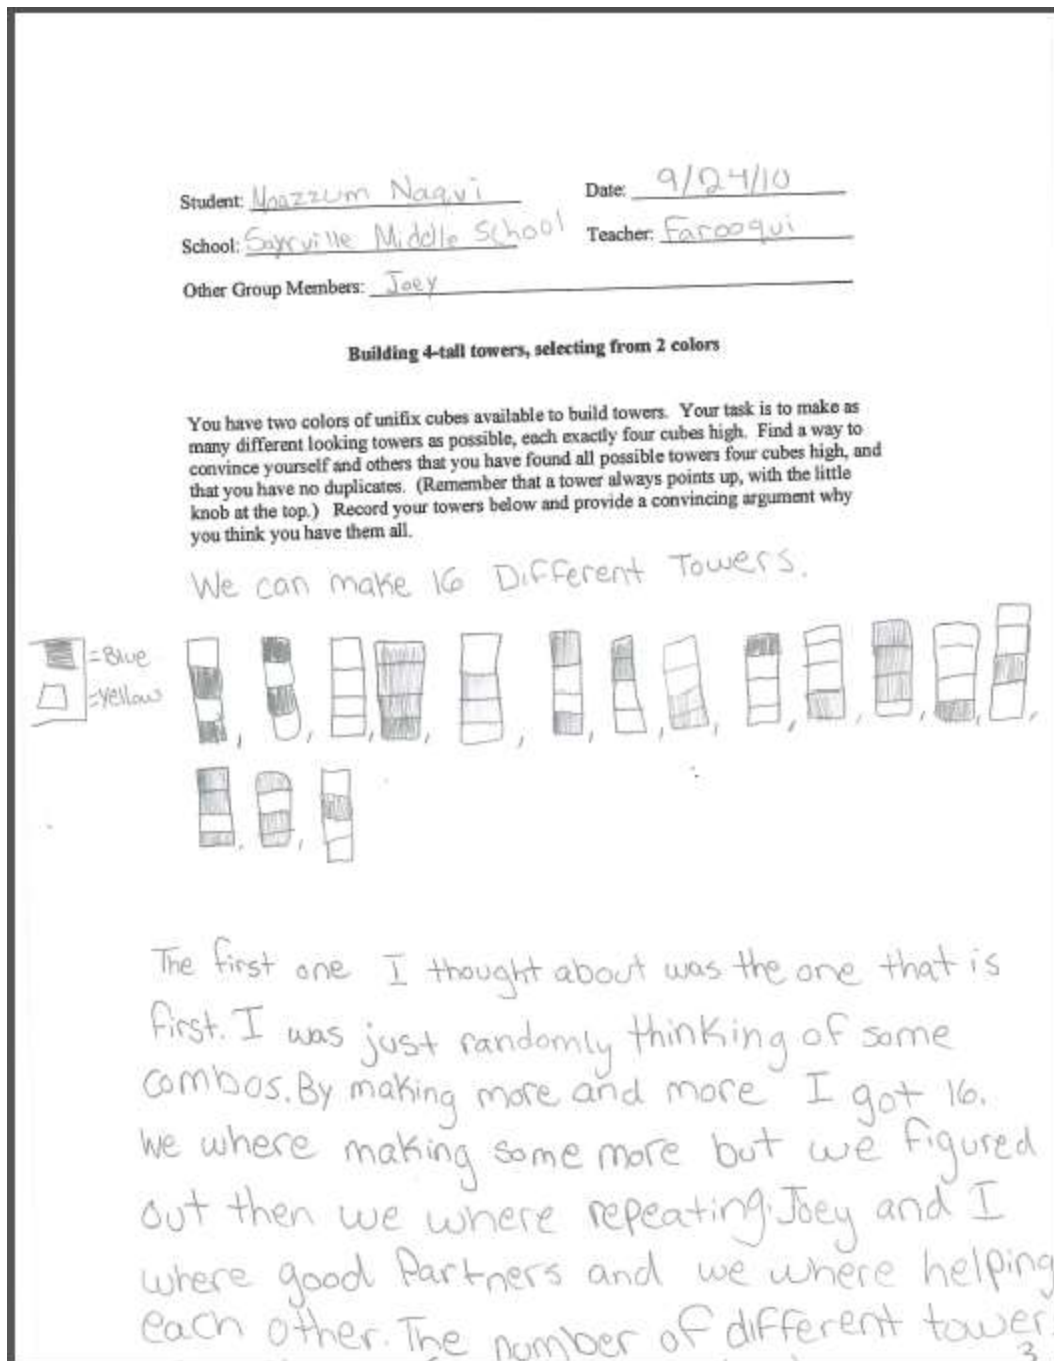 Student: Moazzum Naqvi
Date: 9/24/10
School: Sayrville Middle School
Teacher: Farooqui
Other Group Members: Joey
Building 4-tall towers, selecting from 2 colors
You have two colors of unifix cubes available to build towers. Your task is to make as
many different looking towers as possible, each exactly four cubes high. Find a way to
convince yourself and others that you have found all possible towers four cubes high, and
that you have no duplicates. (Remember that a tower always points up, with the little
knob at the top.) Record your towers below and provide a convincing argument why
you think you have them all.
We can make 16 Different Towers.
=Blue
=Yellow
The first one I thought about was the one that is
first. I was just randomly thinking of some
combos. By making more and more I got 16.
We where making some more but we figured
out then we where repeating. Joey and I
where good Partners and we where helping
each other. The number of different tower
3